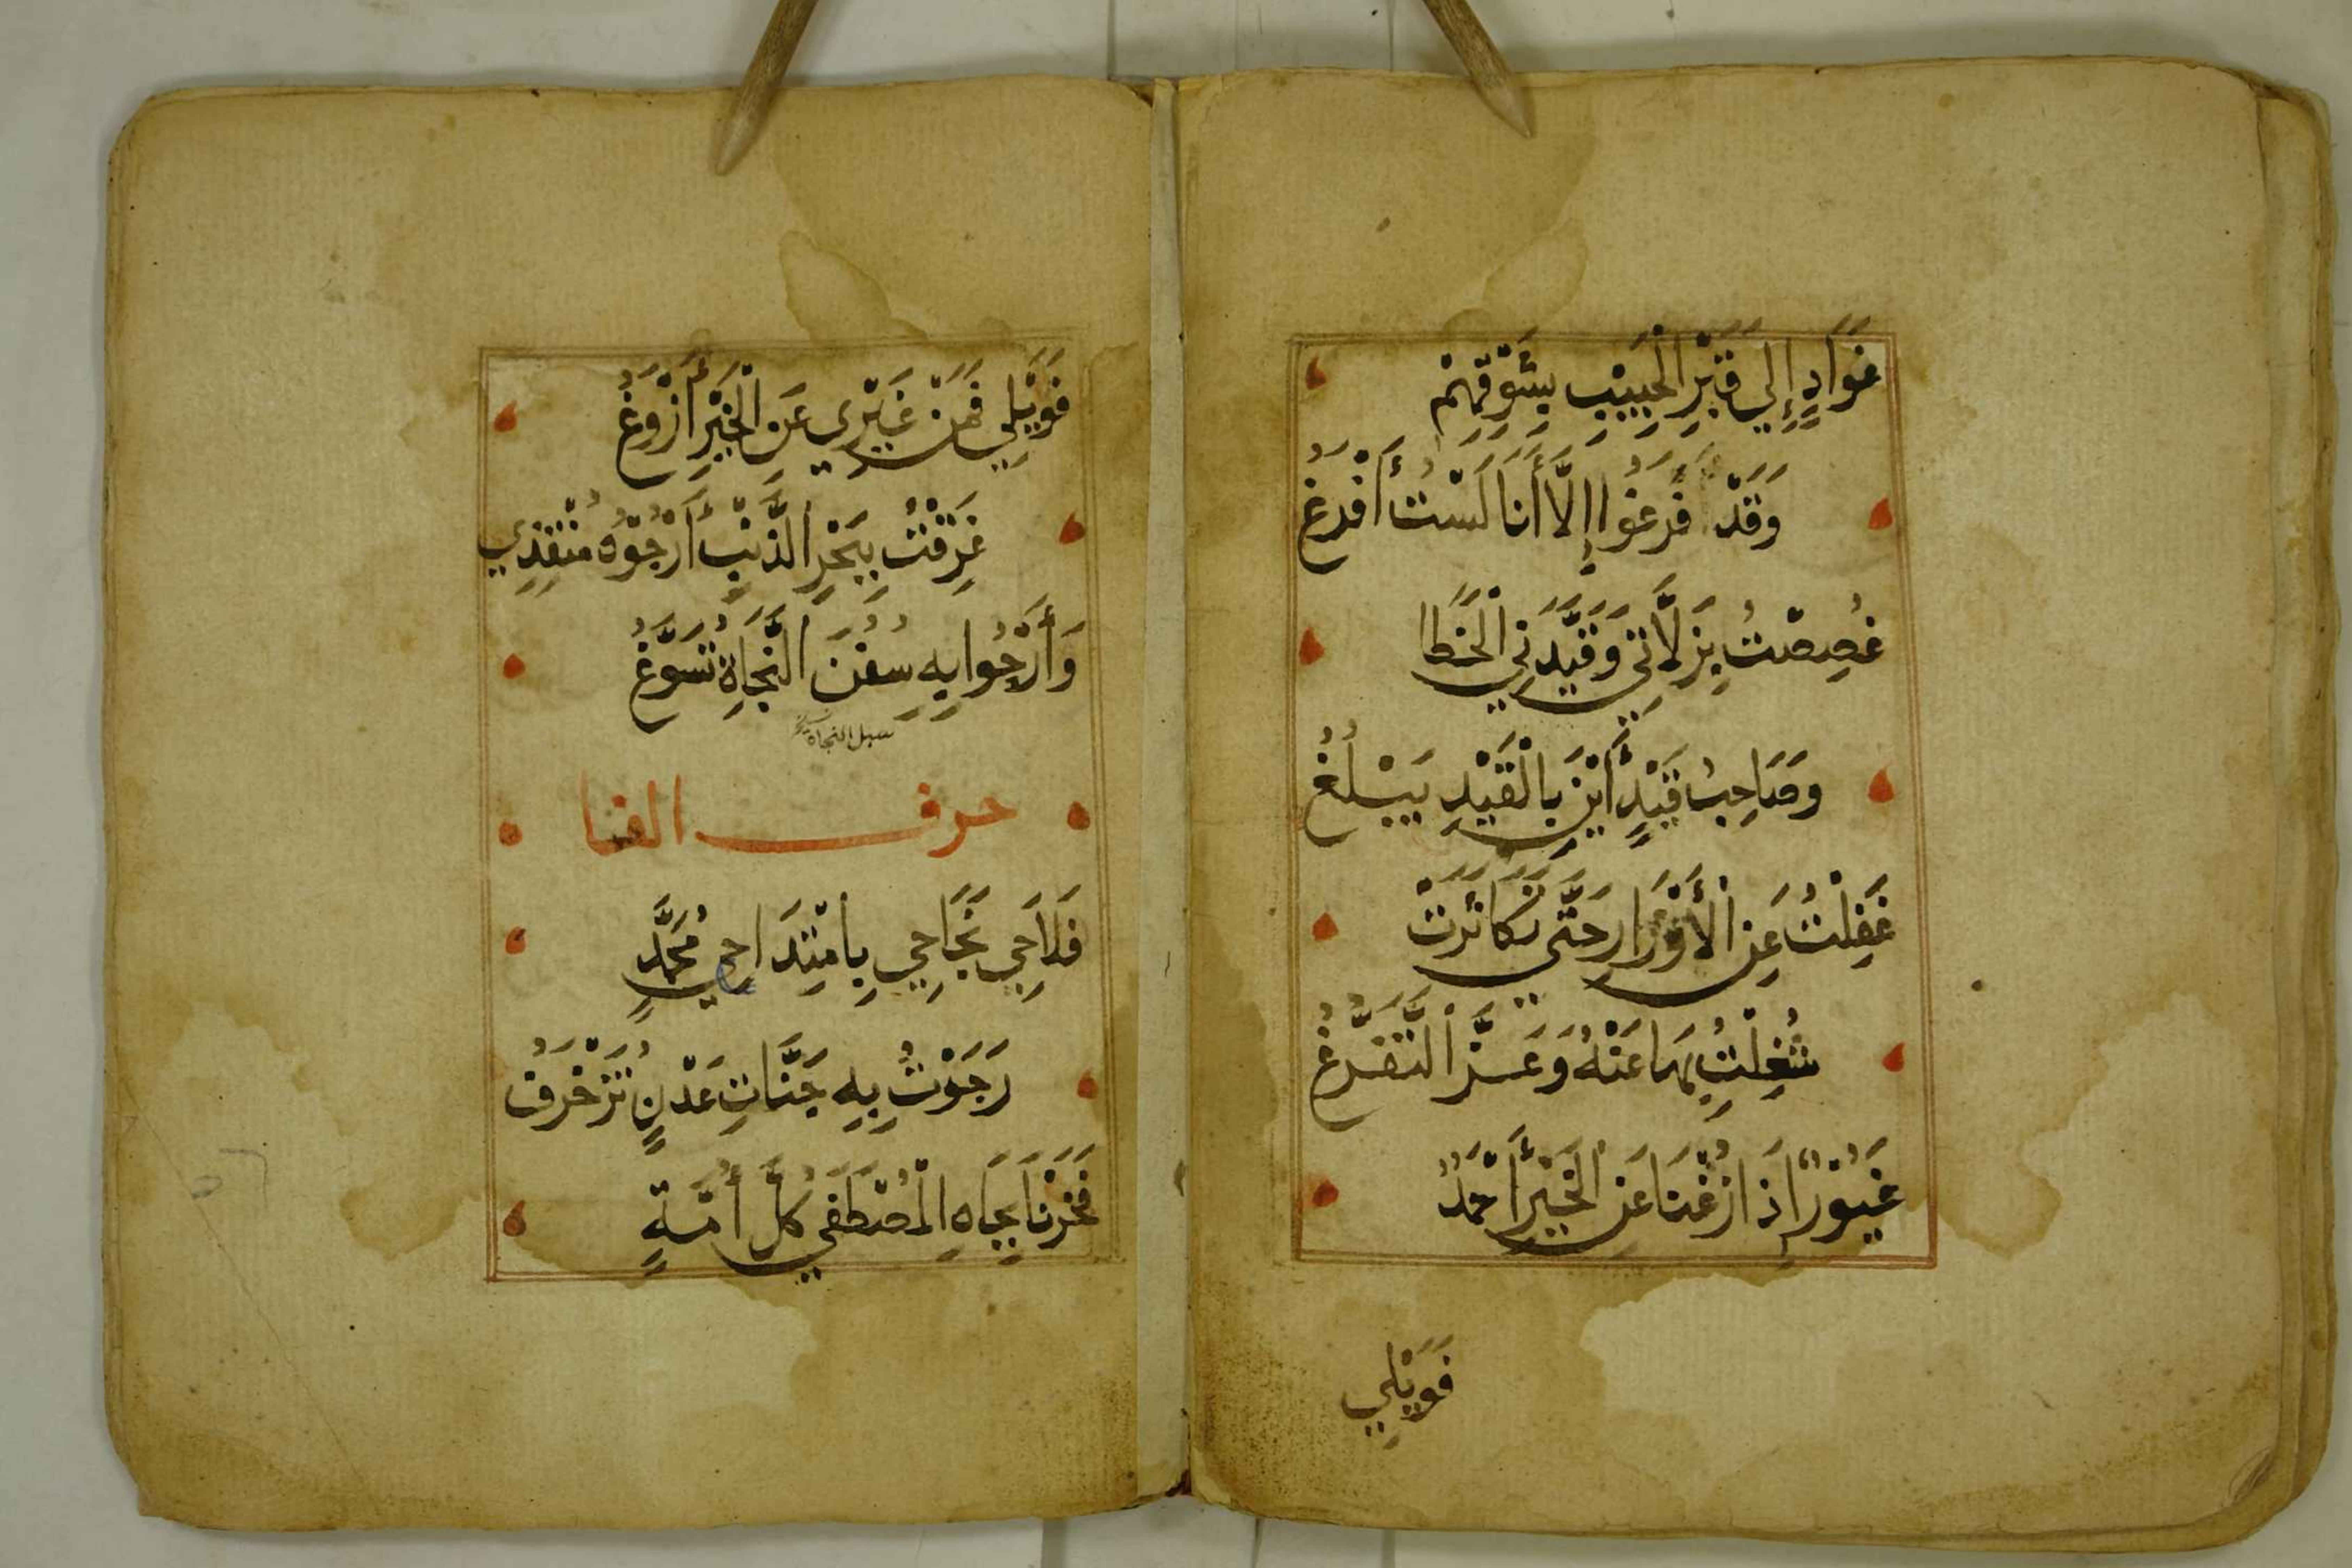 غَوَادٍ إِلَي قَبْرِ الْحَبِيْبِ بِشَوْقِهِمْ
وَقَدْ فَرَغُوا إِلَّا أَنَا لَسْتُ أَفْرَغُ
غُصِصْتُ بِزَلَّاتِي وَقَيَّدَنِي الْخَطَا
وَصَاحِبُ قَيْدٍ أَيْنَ بِالْقَيْدِ يَبْلُغُ
غَفِلْتُ عَنِ الْأَوْزَارِ حَتَّي تَكَاثَرَتْ
شُغِلْتُ بِهَا عَنْهُ وَعَزَّ التَّفَرُّغُ
غَيُوْرًا إِذَا زُغْنَا عَنِ الْخَيْرِ أَحْمَدُ
فَوَيْلِي
فَوَيْلِي فَمَنْ غَيْرِي عَنِ الْخَيْرِ أَزْوَغُ
غَرِقْتُ بِبَحْرِ الذَّنْبِ أَرْجُوْهُ مُنْقِذِي
وَأَرْجُوا بِهِ سُفُنَ النَّجَاةِ تُسَوَّغُ
سبل النجاة
حرف الفا
فَلَاحِي نَجَاحِي بِامْتِدَاحِي مُحَمَّدٍ
رَجَوْتُ بِهِ جَنَّاتِ عَدْنٍ تُزَخْرَفُ
فَخَرْنَا بِجَاهِ الْمُصْطَفَي كُلَّ أُمَّةٍ